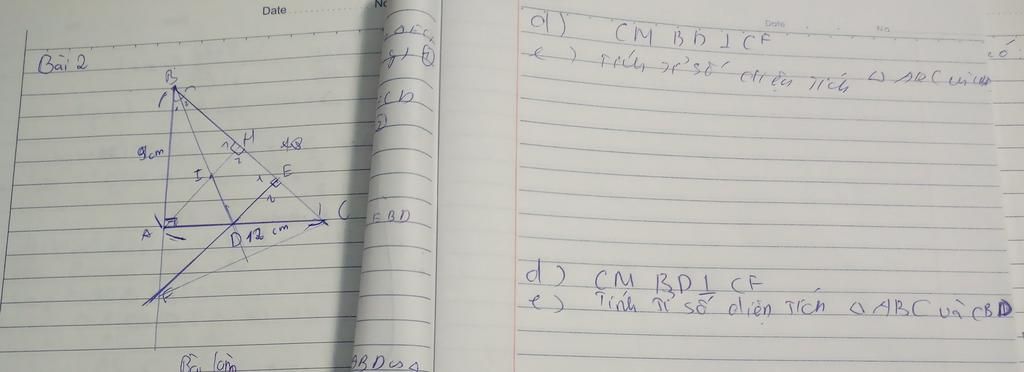 Date
No
Bài 2
B
9cm
H
I
E
A
D 12 cm
C
F
Bài làm
ECD
EBD
ABD ∽ Δ
Date
No.
d) CM BD ⊥ CF
e) Tính tỉ số diện tích Δ ABC và
d) CM BD ⊥ CF
e) Tính tỉ số diện tích Δ ABC và CBD